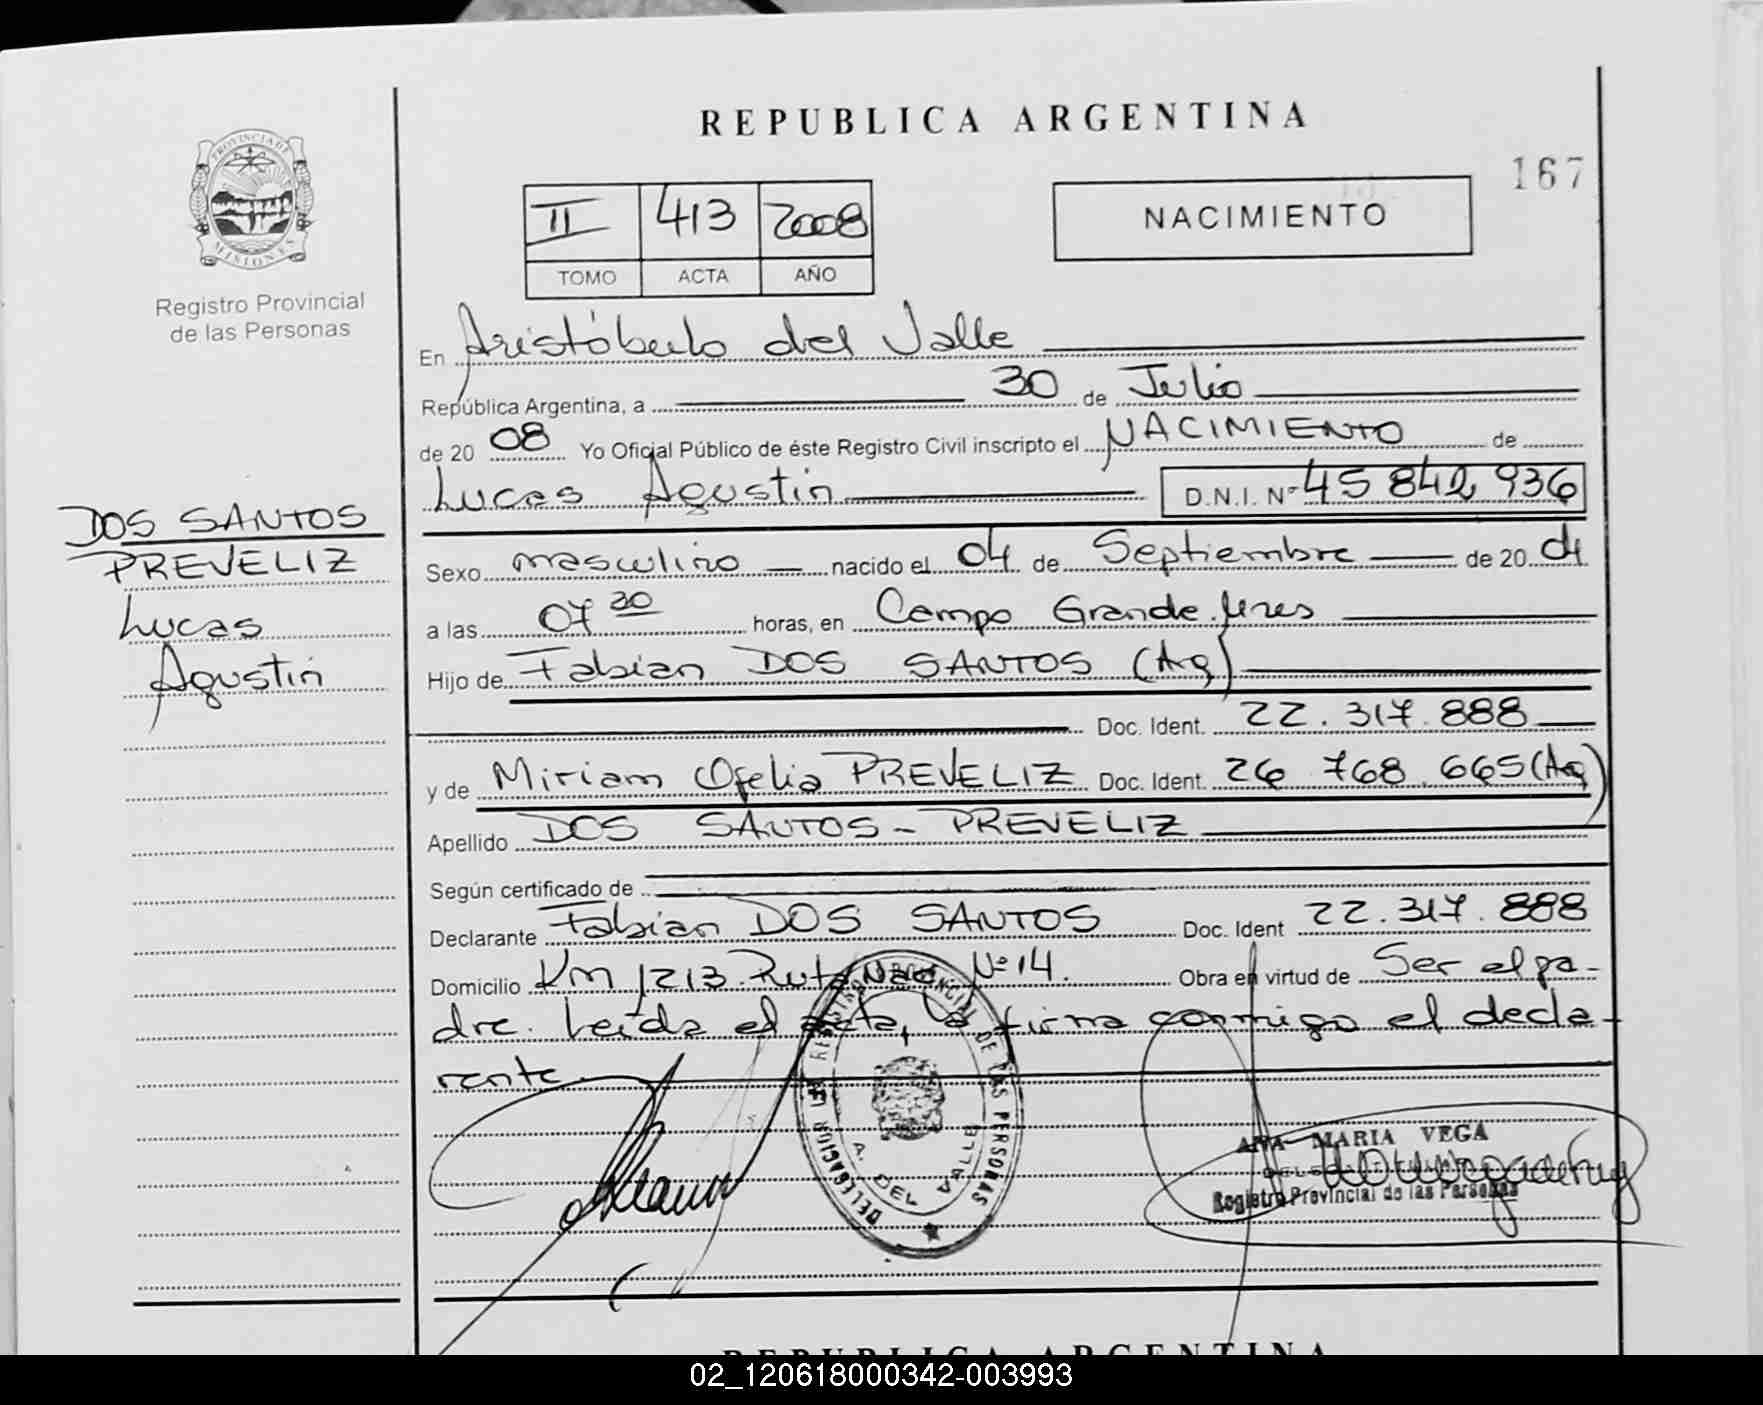 REPUBLICA ARGENTINA
167
PROVINCIA DE MISIONES
Registro Provincial
de las Personas
II 413 2008
TOMO ACTA AÑO
NACIMIENTO
En Aristóbulo del Valle
República Argentina, a 30 de Julio
de 20 08 Yo Oficial Público de éste Registro Civil inscripto el NACIMIENTO de
Lucas Agustin D.N.I. Nº 45 842 936
DOS SANTOS
PREVELIZ
Lucas
Agustin
Sexo masculino nacido el 04 de Septiembre de 20 04
a las 07 30 horas, en Campo Grande. Mnes
Hijo de Fabian DOS SANTOS (Ag)
Doc. Ident. 22.317.888
y de Miriam Ofelia PREVELIZ Doc. Ident. 26 768.665 (Ag)
Apellido DOS SANTOS - PREVELIZ
Según certificado de
Declarante Fabian DOS SANTOS Doc. Ident 22.317.888
Domicilio Km 1213 Ruta Nac Nº 14. Obra en virtud de Ser el pa-
dre. Leída el acta, la firma conmigo el decla-
rante
REGISTRO PROVINCIAL DE LAS PERSONAS
DELEGACION
A. DEL VALLE
ANA MARIA VEGA
Registro Provincial de las Personas
REPUBLICA ARGENTINA
02_120618000342-003993